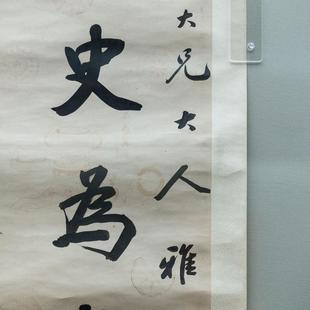 大兄大人雅
史為